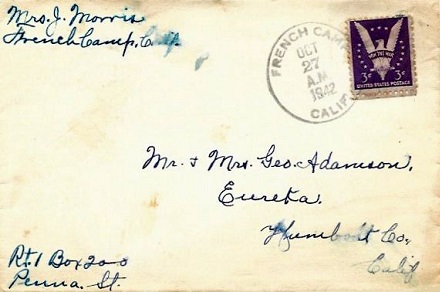 Mrs. J. Morris
French Camp, Calif.
FRENCH CAMP
OCT
27
A.M
1942
CALIF.
WIN THE WAR
3¢ 3¢
UNITED STATES POSTAGE
Mr. & Mrs. Geo. Adamson.
Eureka.
Humboldt Co.,
Calif
Rt. 1 Box 200
Penna. St.